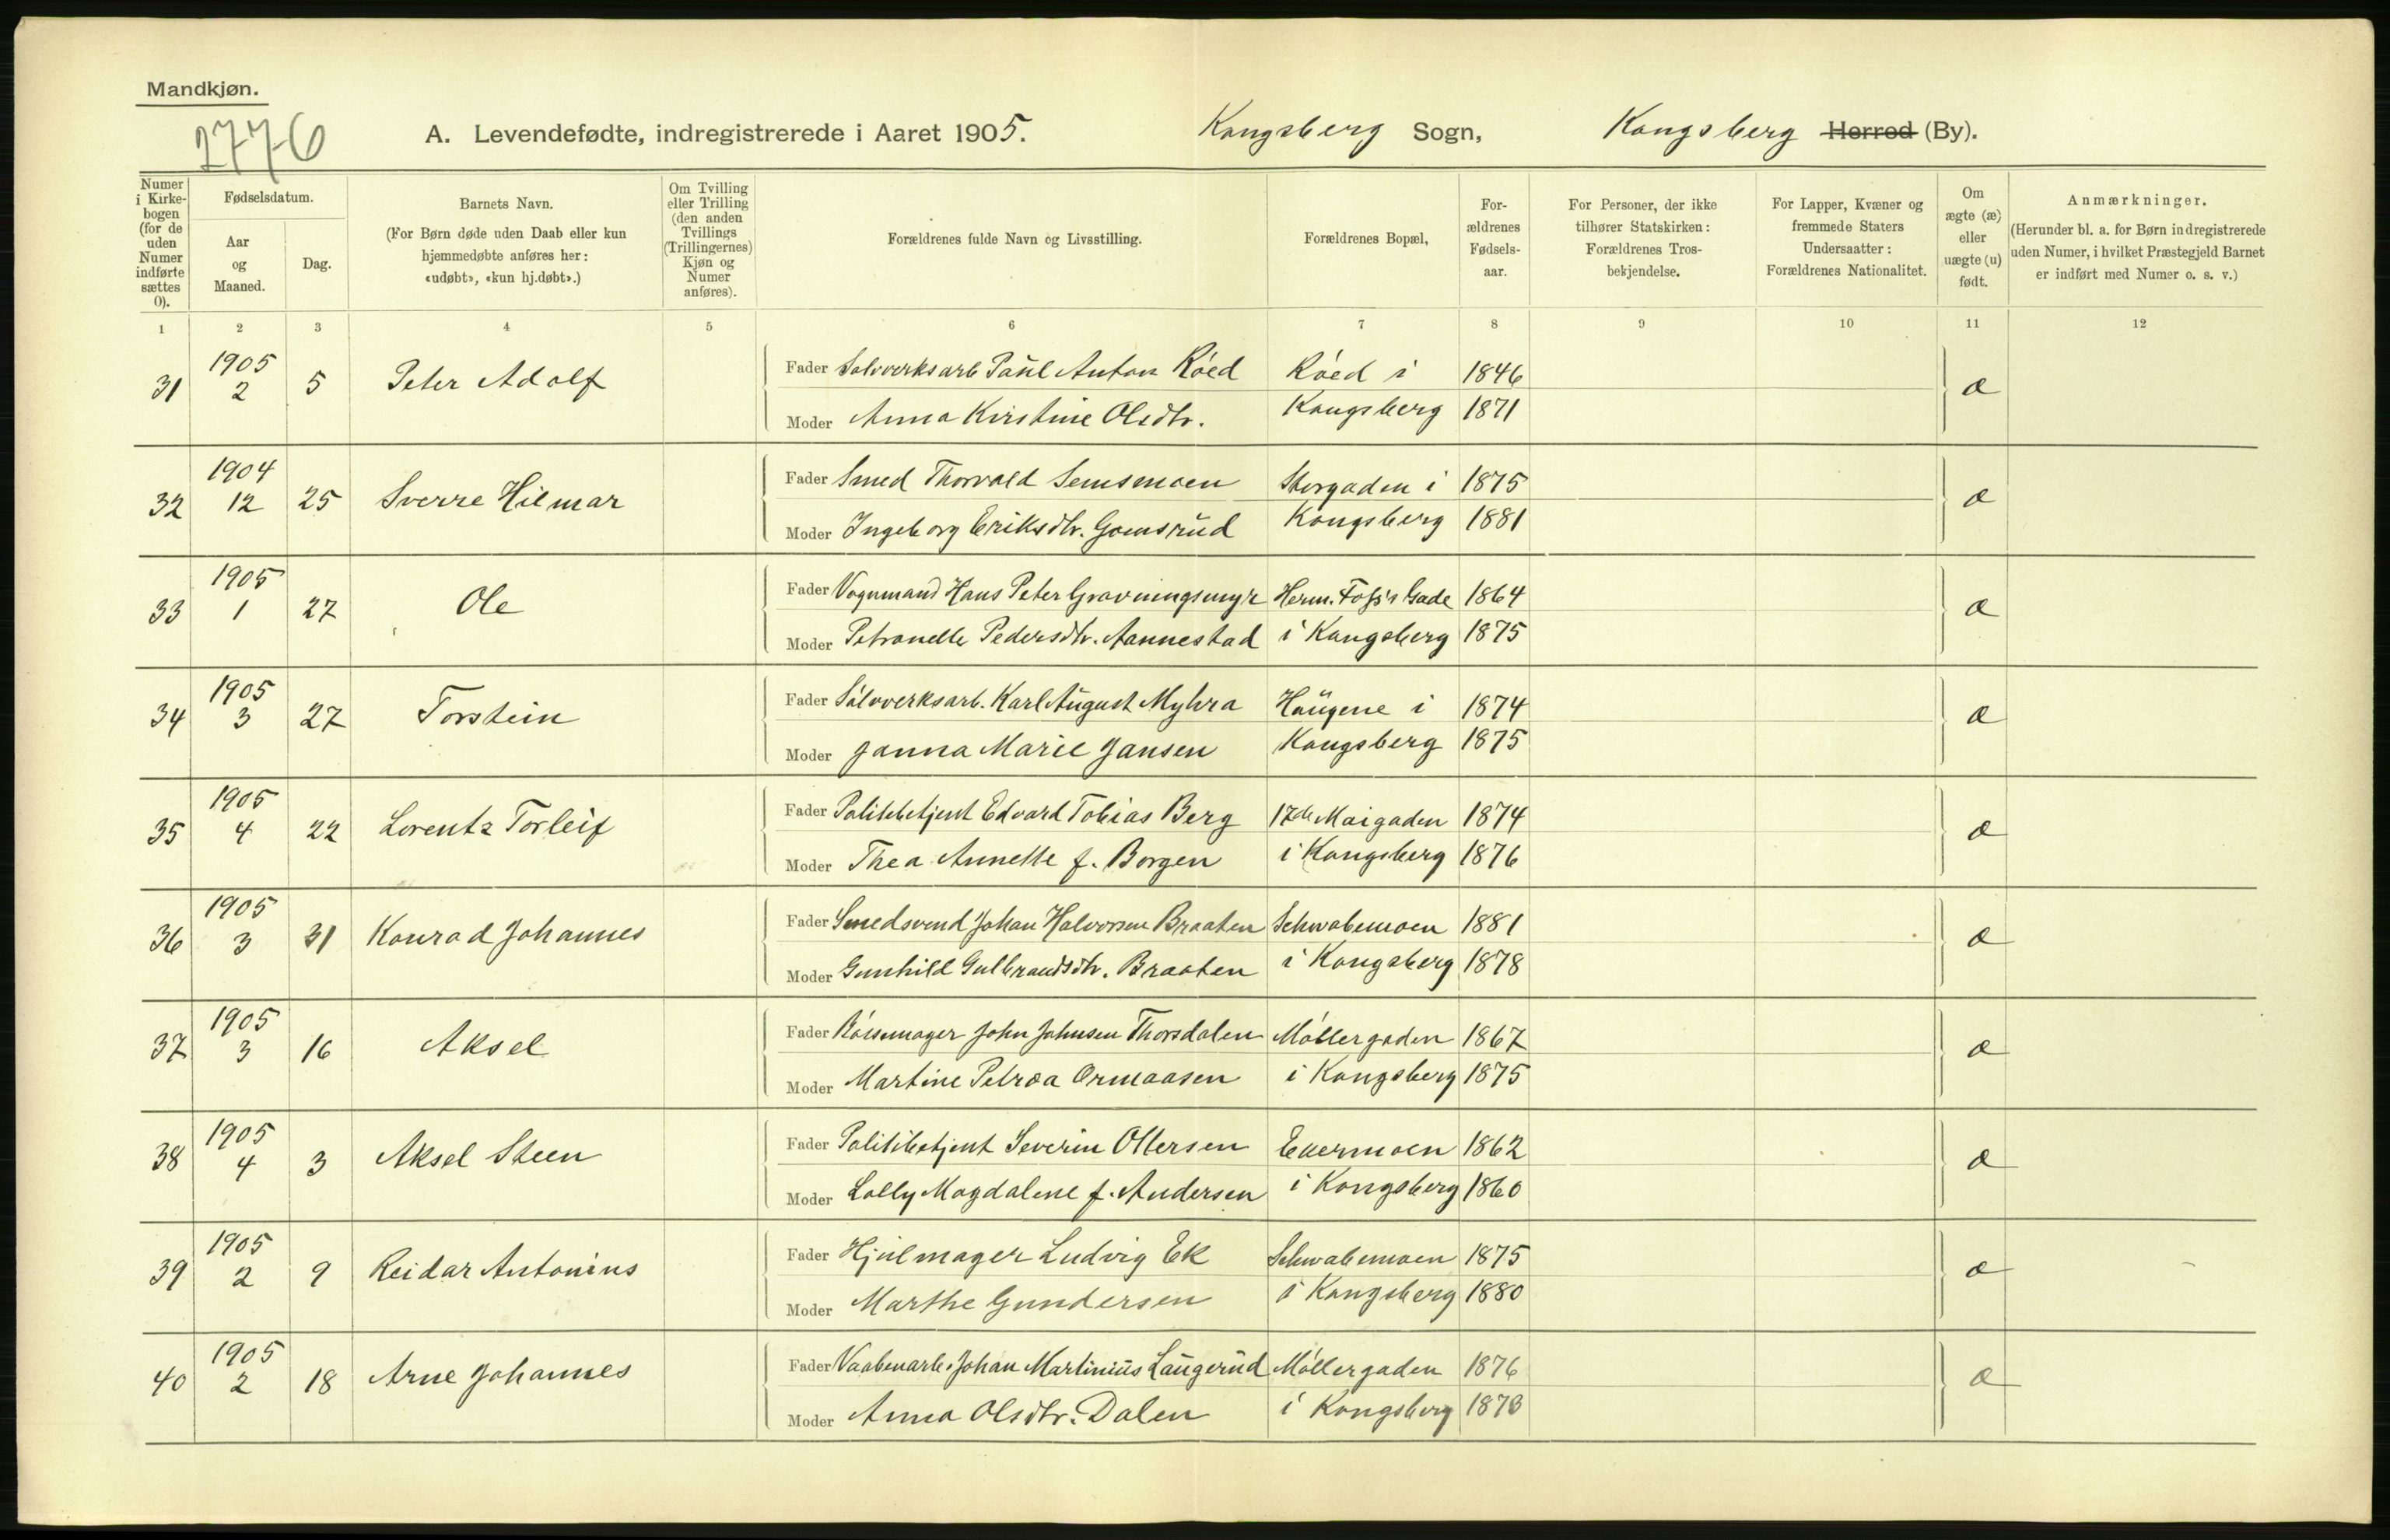 Mandkjøn.
2776
A. Levendefødte, indregistrerede i Aaret 1905. Kongsberg Sogn, Kongsberg Herred (By).
Numer i Kirkebogen (for de uden Numer indførte sættes 0).
Fødselsdatum.
Aar og Maaned.
Dag.
Barnets Navn.
(For Børn døde uden Daab eller kun hjemmedøbte anføres her: «udøbt», «kun hj.døbt».)
Om Tvilling eller Trilling (den anden Tvillings (Trillingernes) Kjøn og Numer anføres).
Forældrenes fulde Navn og Livsstilling.
Forældrenes Bopæl,
For-ældrenes Fødsels-aar.
For Personer, der ikke tilhører Statskirken: Forældrenes Tros-bekjendelse.
For Lapper, Kvæner og fremmede Staters Undersaatter: Forældrenes Nationalitet.
Om ægte (æ) eller uægte (u) født.
Anmærkninger.
(Herunder bl. a. for Børn indregistrerede uden Numer, i hvilket Præstegjeld Barnet er indført med Numer o. s. v.)
1 2 3 4 5 6 7 8 9 10 11 12
1905
31 2 5 Peter Adolf Fader Sølvverksarb Paul Anton Røed Røed i 1846 æ
Moder Anna Kirstine Olsdtr. Kongsberg 1871
1904
32 12 25 Sverre Hilmar Fader Smed Thorvald Semsmoen Storgaden i 1875 æ
Moder Ingeborg Eriksdtr. Gomsrud Kongsberg 1881
1905
33 1 27 Ole Fader Vognmand Hans Peter Gravningsmyr Herm. Foss's Gade 1864 æ
Moder Petronelle Pedersdtr. Aannestad i Kongsberg 1875
1905
34 3 27 Torstein Fader Sølvverksarb. Karl August Myhra Haugene i 1874 æ
Moder Janna Marie Jansen Kongsberg 1875
1905
35 4 22 Lorentz Torleif Fader Politibetjent Edvard Tobias Berg 17de Maigaden 1874 æ
Moder Thea Annette f. Borgen i Kongsberg 1876
1905
36 3 31 Konrad Johannes Fader Smedsvend Johan Halvorsen Braaten Schwabemoen 1881 æ
Moder Gunhild Gulbrandsdtr. Braaten i Kongsberg 1878
1905
37 3 16 Aksel Fader Børsemager John Johnsen Thorsdalen Møllergaden 1867 æ
Moder Martine Petrea Ormaasen i Kongsberg 1875
1905
38 4 3 Aksel Steen Fader Politibetjent Severin Ottersen Ekermoen 1862 æ
Moder Lolly Magdalene f. Andersen i Kongsberg 1860
1905
39 2 9 Reidar Antonius Fader Hjulmager Ludvig Ek Schwabemoen 1875 æ
Moder Marthe Gundersen i Kongsberg 1880
1905
40 2 18 Arne Johannes Fader Vaabenarb. Johan Martinius Laugerud Møllergaden 1876 æ
Moder Anna Olsdtr. Dalen i Kongsberg 1873